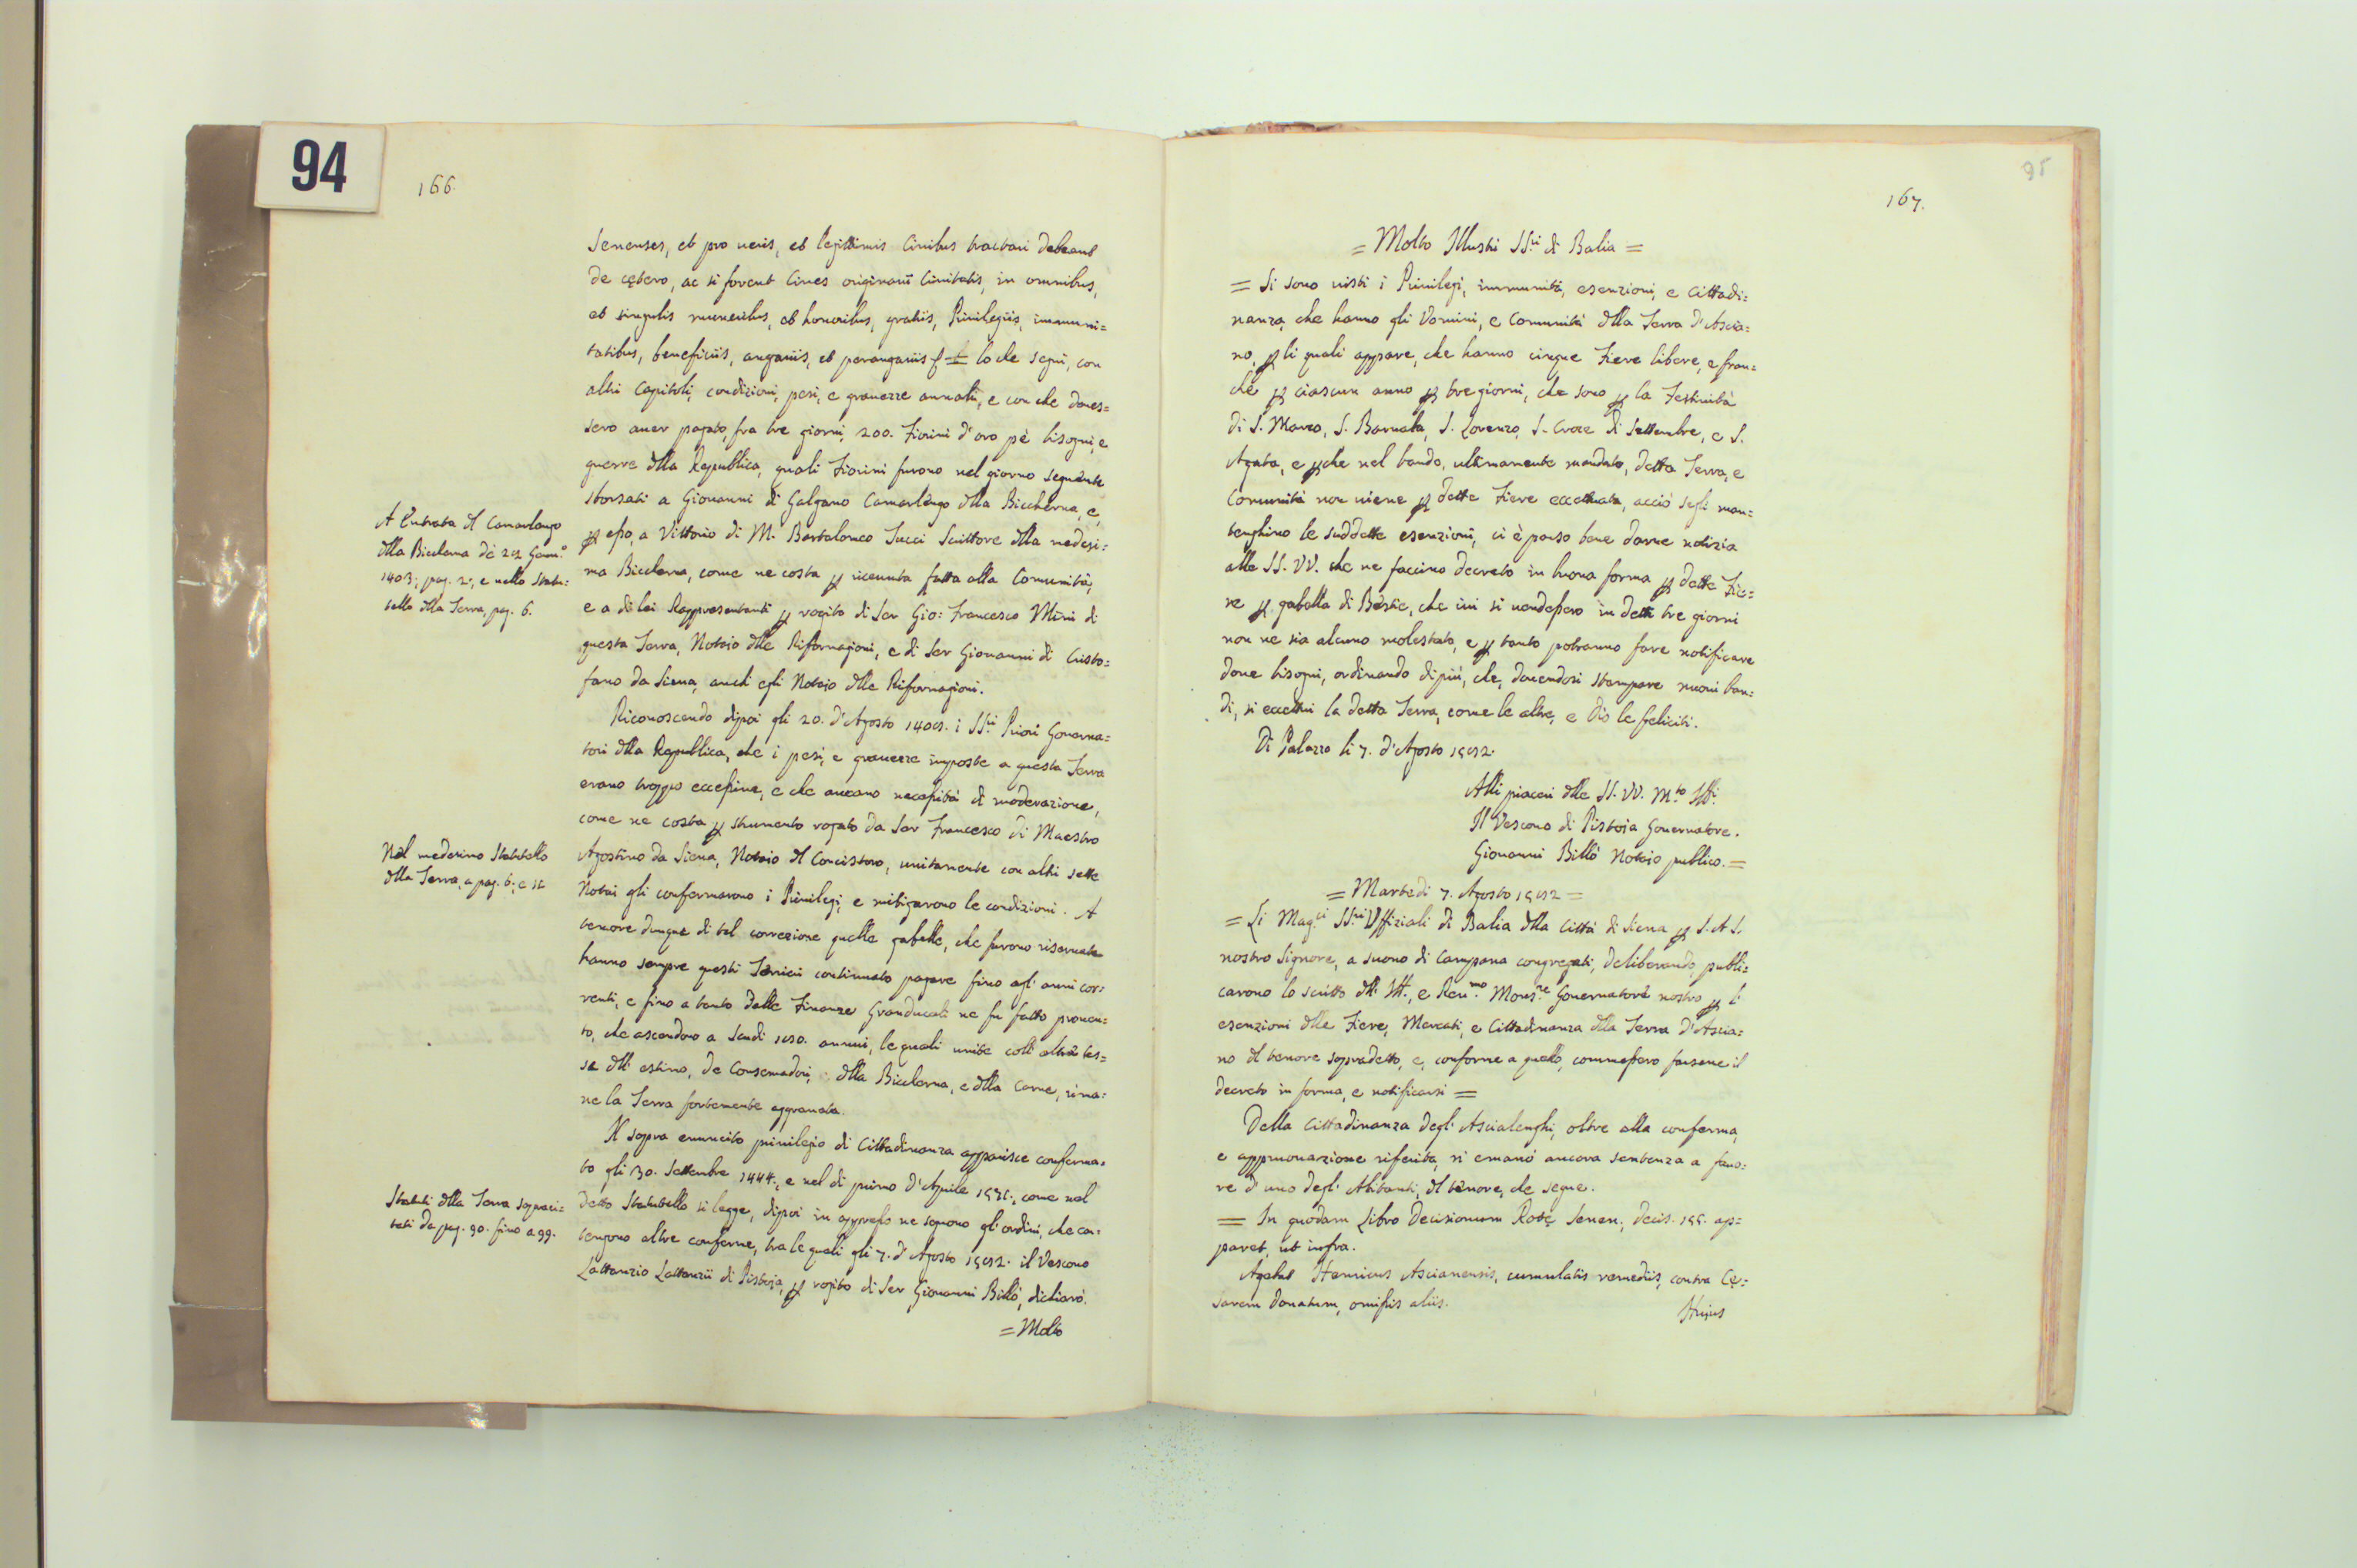 94
166.
Senenses, et pro ueris, et legittimis Ciuibus tractari debeant
de cętero, ac si forent Ciues originarii Ciuitatis, in omnibus,
et singulis muneribus, et honoribus, gratiis, Priuilegiis, immuni=
tatibus, beneficiis, angariis, et perangariis & lo che seguì, con
altri Capitoli, condizioni, pesi, e grauezze annali, e con che doues=
sero auer pagato, fra tre giorni, 200. Fiorini d'oro pè bisogni, e
guerre dlla Republica, quali Fiorini furono nel giorno seguente
sborsati a Giouanni di Galgano Camarlengo dlla Biccherna, e,
p esso, a Vittorio di M. Bartolomeo Tucci Scrittore dlla medesi=
ma Biccherna, come ne costa p riceuuta fatta alla Comunità,
e a di lei Rappresentanti p rogito di Ser Gio: Francesco Mini di
questa Terra, Notaio dlle Riformagioni, e di Ser Giouanni di Cristo=
fano da Siena, anch' egli Notaio dlle Riformagioni.
A Entrata dl Camarlengo
dlla Biccherna dè 22 Genn.º
1403; pag. 2:, e nello Statu:
tello dlla Terra, pag. 6.
Riconoscendo dipoi gli 20. d'Agosto 1405. i SS.ri Priori Gouerna=
tori dlla Republica, che i pesi, e grauezze imposte a questa Terra
erano troppo eccessiue, e che aueano necessità di moderazione,
come ne costa p strumento rogato da Ser Francesco di Maestro
Agostino da Siena, Notaio dl Concistoro, unitamente con altri sette
Notai gli confermarono i Priuilegi, e mitigarono le condizioni. A
tenore dunque di tal correzione quelle gabelle, che furono riseruate
hanno sempre questi Terrieri continuato pagare fino agl' anni cor=
renti, e fino a tanto dalle Finanze Granducali ne fu fatto prouen=
to, che ascendono a Scudi 1050. annui, le quali unite coll' altre tas=
se dll' estimo, de Conseruadori, dlla Biccherna, e dlla Carne, rima=
ne la Terra fortemente aggrauata.
Nel medesimo Statutello
dlla Terra, a pag. 6:, e 12
Il sopra enunciato priuilegio di Cittadinanza apparisce conferma=
to gli 30. Settembre 1444., e nel dì primo d'Aprile 1531., come nel
detto Statutello si legge, dipoi in appresso ne seguono gl' ordini, che con=
tengono altre conferme, tra le quali gli 7. d'Agosto 1592. il Vescouo
Lattanzio Lattanzii di Pistoja, p rogito di Ser Giouanni Billò, dichiarò.
Statuti dlla Terra sopraci=
tati da pag. 90. fino a 99.
= Molto
95
167.
= Molto Illustri SS.ri di Balia =
= Si sono uisti i Priuilegi, immunità, esenzioni, e Cittadi=
nanza, che hanno gli Uomini, e Comunità dlla Terra d'Ascia=
no, p li quali appare, che hanno cinque Fiere libere, e fran=
che p ciascun anno p tre giorni, che sono p la Festiuità
di S. Marco, S. Barnaba, S. Lorenzo, S. Croce di Settembre, e S.
Agata, e p che nel bando, ultimamente mandato, detta Terra, e
Comunità non uiene p dette Fiere eccettuata, acciò segli man=
tenghino le suddette esenzioni, ci è parso bene darne notizia
alle SS. VV. che ne faccino decreto in buona forma p dette Fie=
re p gabella di Bestie, che iui si uendessero in detti tre giorni
non ne sia alcuno molestato, e p tanto potranno fare notificare
doue bisogni, ordinando di più, che, douendosi stampare nuoui ban=
di, si eccettui la detta Terra, come le altre, e Dio le feliciti.
Di Palazzo li 7. d'Agosto 1592.
Alli piaceri dlle SS. VV. M.to Ill.ri
Il Vescouo di Pistoja Gouernatore.
Giouanni Billò Notaio publico. =
= Martedì 7. Agosto 1592 =
= Li Mag.ci SS.ri Uffiziali di Balia dlla Città di Siena p S. A. S.
nostro Signore, a suono di Campana congregati, deliberando, publi=
carono lo scritto dll' Ill., e Reu.mo Mons.re Gouernatore nostro p l'
esenzioni dlle Fiere, Mercati, e Cittadinanza dlla Terra d'Ascia=
no dl tenore sopradetto, e, conforme a quello, commessero farsene il
decreto in forma, e notificarsi =
Della Cittadinanza degl' Ascialenghi, oltre alla conferma,
e appruouazione riferita, si emanò ancora sentenza a fauo=
re d' uno degl' Abitanti, dl tenore, che segue.
= In quodam Libro Decisionum Rotę Senen:, decis. 155. ap=
paret, ut infra.
Agebat Henricus Ascianensis, cumulatis remediis, contra Cę=
sarem Donatum, omissis aliis.
Huius